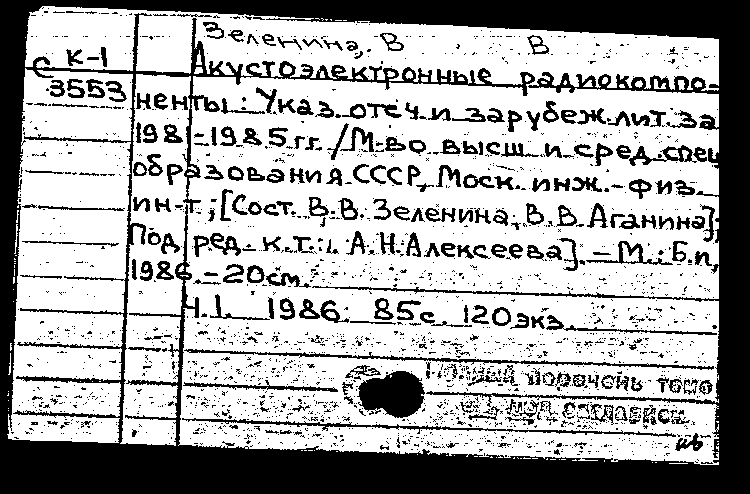 Зеленина, В В
С К-1
3553
Акустоэлектронные радиокомпо-
ненты: Указ. отеч. и зарубеж. лит. за
1981-1985 гг. /М-во высш. и сред. спец
образования СССР, Моск. инж.-физ.
ин-т; [Сост. В.В. Зеленина, В.В. Аганина];
Под ред. к.т.: А.Н. Алексеева]. - М.: Б.и,
1986. - 20см.
Ч.1. 1986. 85с. 120экз.
Полный перечень томо